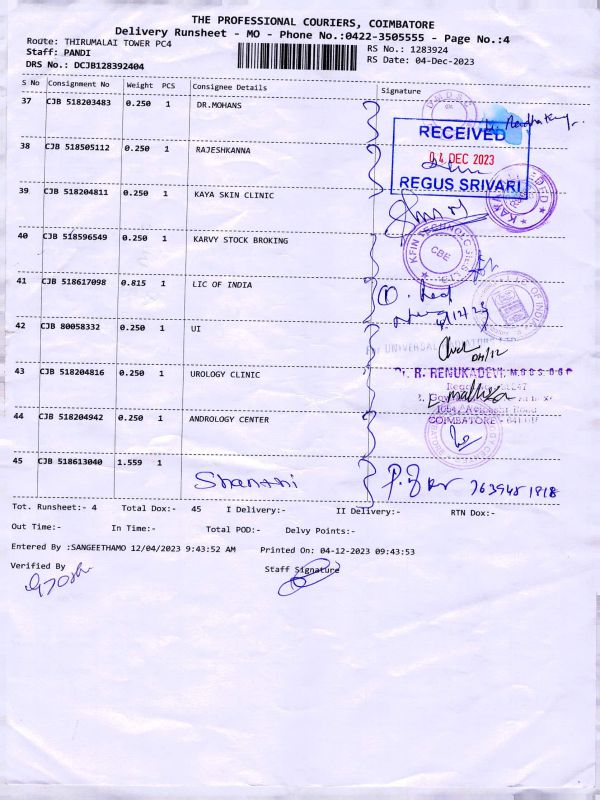 THE PROFESSIONAL COURIERS, COIMBATORE
Delivery Runsheet - MO - Phone No.:0422-3505555 - Page No.:4
Route: THIRUMALAI TOWER PC4
Staff: PANDI
DRS No.: DCJB128392404
RS No.: 1283924
RS Date: 04-Dec-2023
S No Consignment No Weight PCS Consignee Details Signature
37 CJB 518203483 0.250 1 DR.MOHANS
38 CJB 518505112 0.250 1 RAJESHKANNA
RECEIVED
04 DEC 2023
REGUS SRIVARI
39 CJB 518204811 0.250 1 KAYA SKIN CLINIC
40 CJB 518596549 0.250 1 KARVY STOCK BROKING
KFIN TECHNOLOGIES
CBE
41 CJB 518617098 0.815 1 LIC OF INDIA
42 CJB 80058332 0.250 1 UI
For UNIVERSAL
04/12
43 CJB 518204816 0.250 1 UROLOGY CLINIC
Dr. R. RENUKADEVI, M.B.B.S. D.G.O
44 CJB 518204942 0.250 1 ANDROLOGY CENTER
COIMBATORE
45 CJB 518613040 1.559 1
Shanthi
Tot. Runsheet:- 4 Total Dox:- 45 I Delivery:- II Delivery:- RTN Dox:-
Out Time:- In Time:- Total POD:- Delvy Points:-
Entered By :SANGEETHAMO 12/04/2023 9:43:52 AM Printed On: 04-12-2023 09:43:53
Verified By Staff Signature